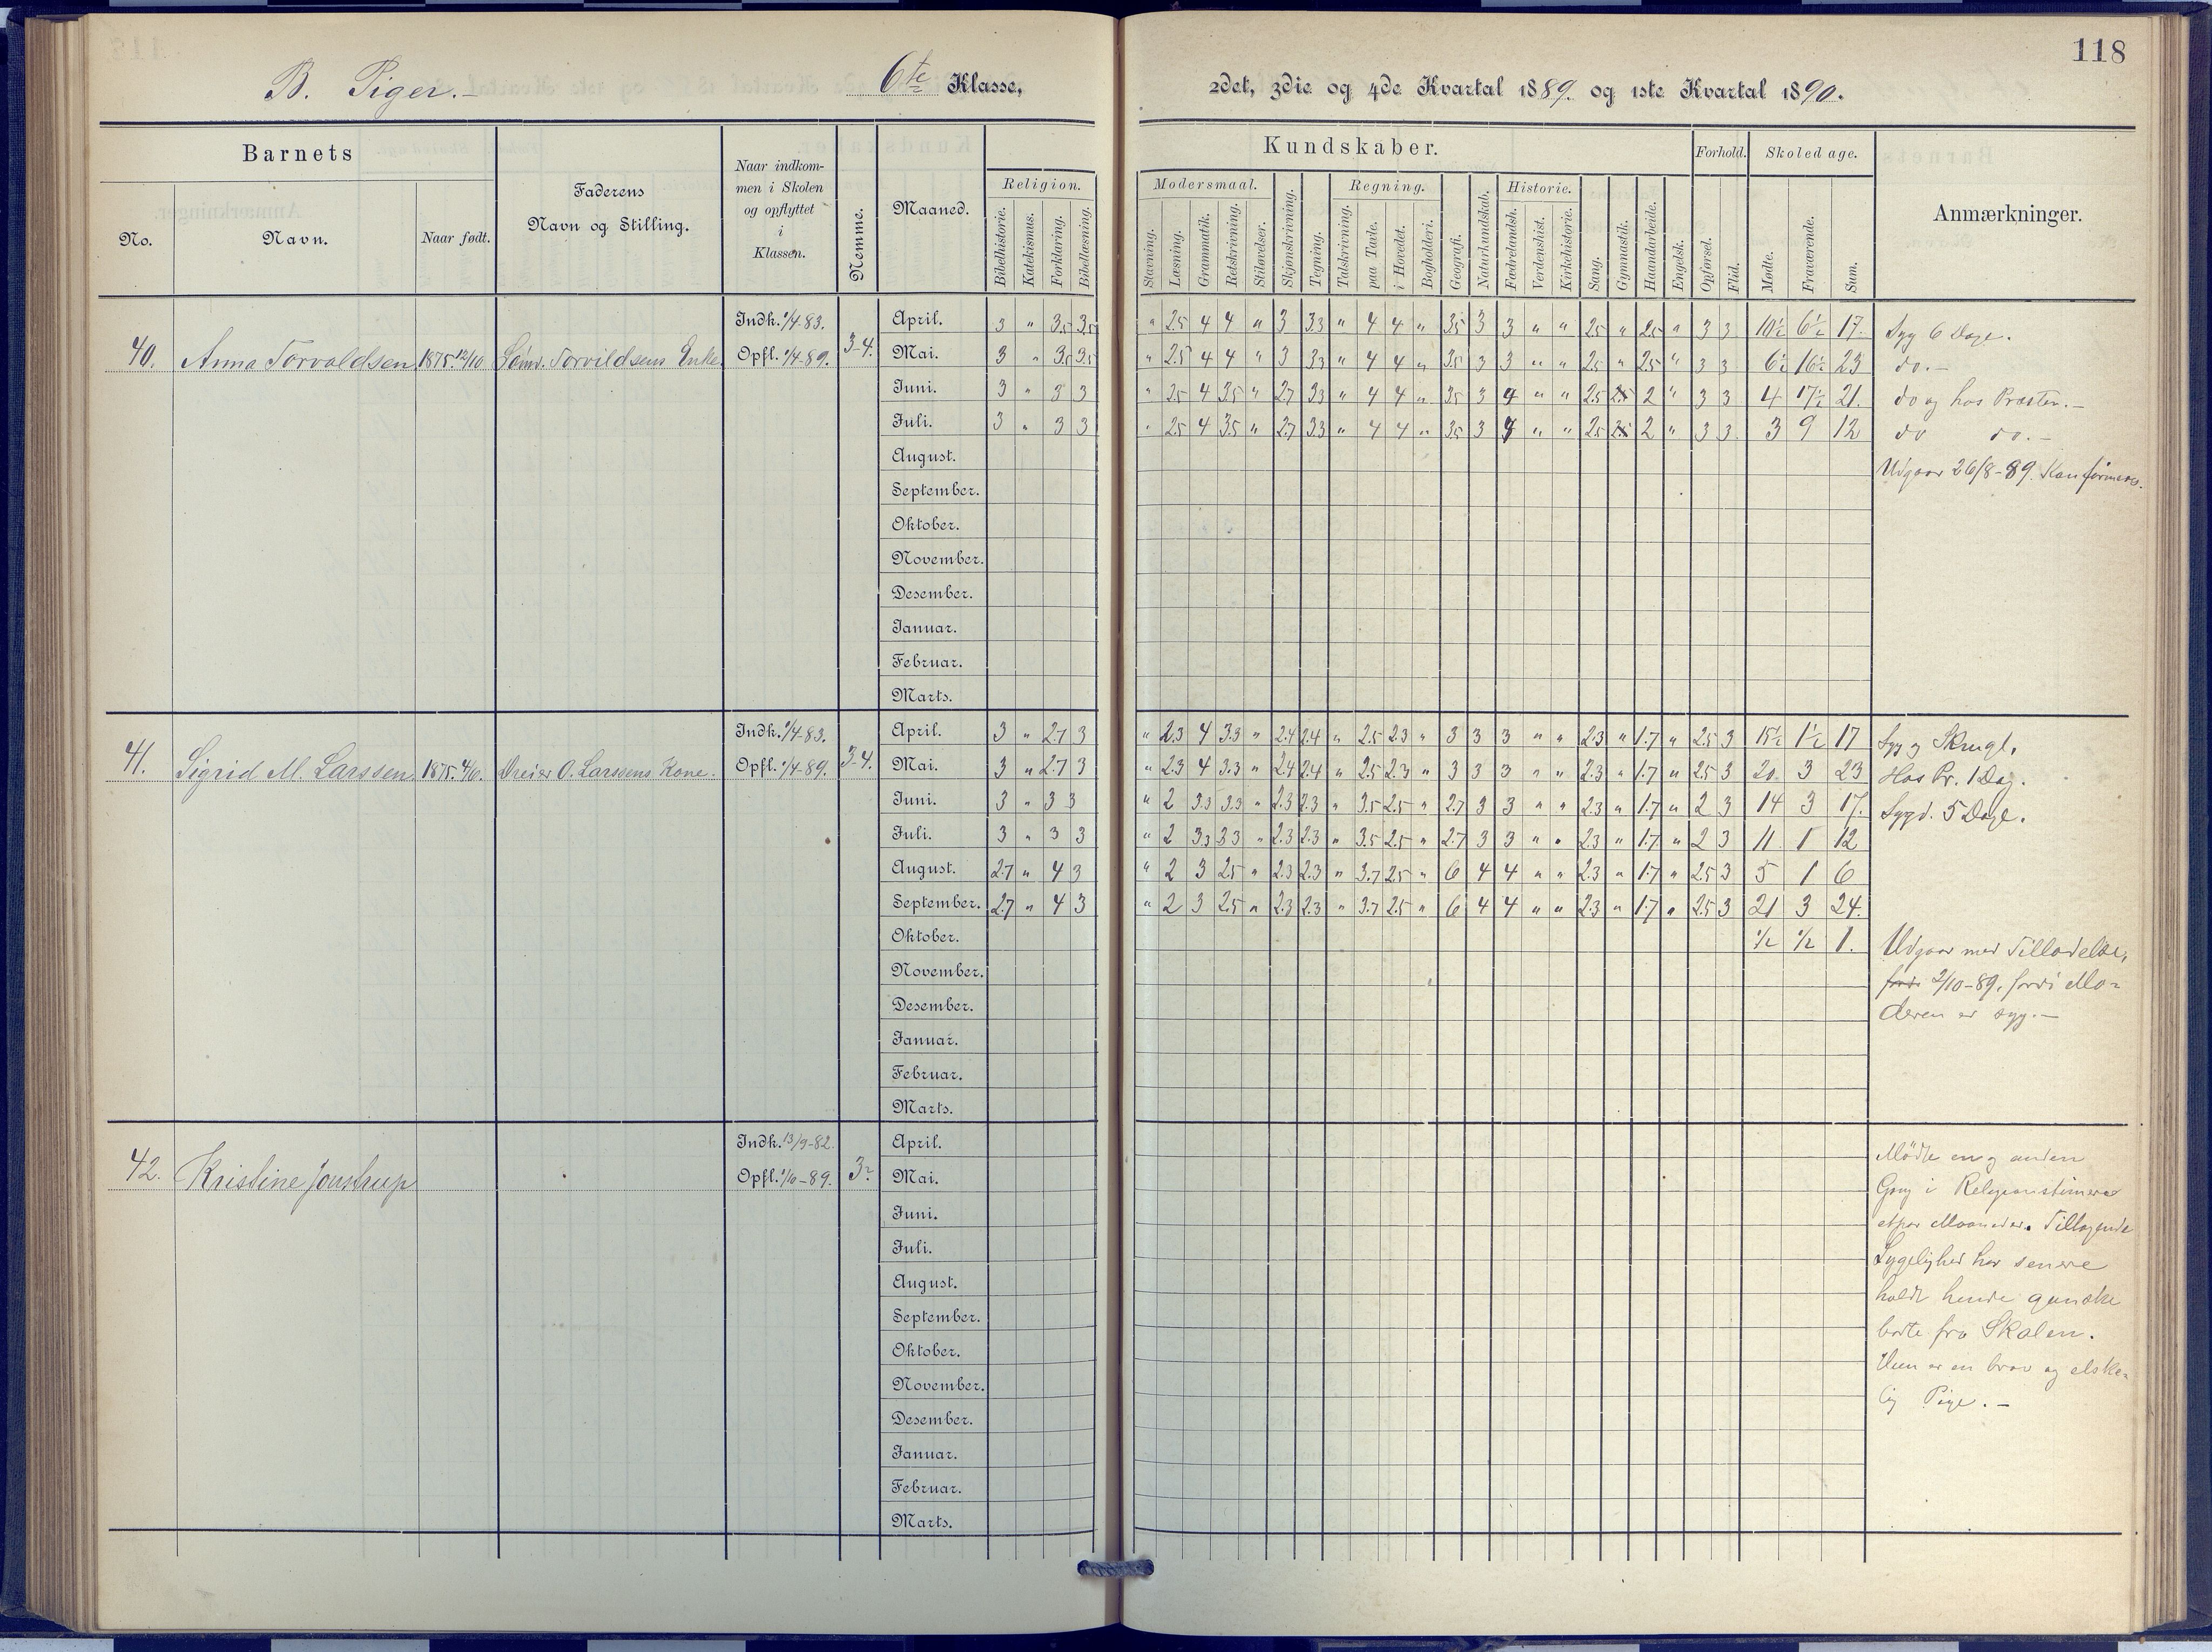 118
B. Piger.- 6te Klasse, 2det, 3die og 4de Kvartal 1889. og 1ste Kvartal 1890.
Barnets
No.
Navn.
Naar født.
Faderens
Navn og Stilling.
Naar indkom-
men i Skolen
og opflyttet
i
Klassen.
Nemme.
Maaned.
Kundskaber.
Religion.
Bibelhistorie. Katekismus. Forklaring. Bibellæsning.
Modersmaal.
Stavning. Læsning. Grammatik. Retskrivning. Stiløvelser.
Skjønskrivning. Tegning.
Regning.
Talskrivning. paa Tavle. i Hovedet. Bogholderi.
Geografi. Naturkundskab.
Historie.
Fædrelandsh. Verdenshist. Kirkehistorie.
Sang. Gymnastik. Haandarbeide. Engelsk.
Forhold.
Opførsel. Flid.
Skoledage.
Mødte. Fraværende. Sum.
Anmærkninger.
40. Anna Torvaldsen 1875 12/10 Sømd. Torvildsens Enke
Indk. 1/4-83.
Opfl. 1/4-89.
3-4.
April. 3 " 3.5 3.5 " 2.5 4 4 " 3 3.3 " 4 4 " 3.5 3 3 " " 2.5 " 2.5 " 3 3 10½ 6½ 17. Syg 6 Dage.
Mai. 3 " 3.5 3.5 " 2.5 4 4 " 3 3.3 " 4 4 " 3.5 3 3 " " 2.5 " 2.5 " 3 3 6½ 16½ 23 do.-
Juni. 3 " 3 3 " 2.5 4 3.5 " 2.7 3.3 " 4 4 " 3.5 3 4 " " 2.5 2 " 3 3 4 17½ 21. do og hos Præsten.-
Juli. 3 " 3 3 " 2.5 4 3.5 " 2.7 3.3 " 4 4 " 3.5 3 4 " " 2.5 2 " 3 3 3 9 12 do do.-
August. Udgaar 26/8-89. Konfirmeres.
September.
Oktober.
November.
Desember.
Januar.
Februar.
Marts.
41. Sigrid M. Larssen 1875. Dreier O. Larssens Kone.
Indk. 1/4-83.
Opfl. 1/4-89.
3-4.
April. 3 " 2.7 3 " 2.3 4 3.3 " 2.4 2.4 " 2.5 2.3 " 3 3 3 " " 2.3 " 1.7 " 2.5 3 15½ 1½ 17
Mai. 3 " 2.7 3 " 2.3 4 3.3 " 2.4 2.4 " 2.5 2.3 " 3 3 3 " " 2.3 " 1.7 " 2.5 3 20 3 23 Hos Pr. 1 Dag.
Juni. 3 " 3 3 " 2 3.3 3.3 " 2.3 2.3 " 3.5 2.5 " 2.7 3 3 " " 2.3 " 1.7 " 2 3 14 3 17. Sygd. 5 Dage.
Juli. 3 " 3 3 " 2 3.3 3.3 " 2.3 2.3 " 3.5 2.5 " 2.7 3 3 " " 2.3 " 1.7 " 2 3 11 1 12
August. 2.7 " 4 3 " 2 3 2.5 " 2.3 2.3 " 3.7 2.5 " 6 4 4 " " 2.3 " 1.7 " 2.5 3 5 1 6
September. 2.7 " 4 3 " 2 3 2.5 " 2.3 2.3 " 3.7 2.5 " 6 4 4 " " 2.3 " 1.7 " 2.5 3 21 3 24.
Oktober. ½ ½ 1. Udgaar med Tilladelse,
November. fordi 2/10-89, fordi Mo-
Desember. deren er syg.-
Januar.
Februar.
Marts.
42. Kristine Jonstrup
Indk. 13/9-82.
Opfl. 1/10-89.
April.
Mai.
Juni.
Juli.
August.
September.
Oktober.
November.
Desember.
Januar.
Februar.
Marts.
Mødte en g anden
Gang i Religionstimerne
etpar Maaneder. Tiltagende
Sygelighed har senere
holdt hende ganske
borte fra Skolen.
Hun er en brav og elske-
lig Pige.-